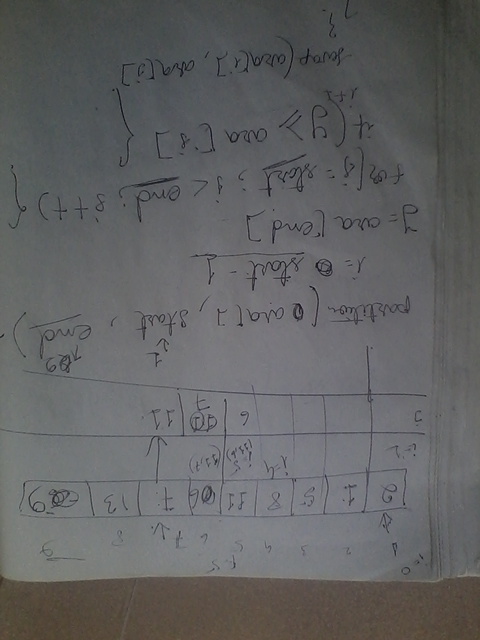 i=0
1 2 3 4 5 6 7 8 9
2 1 5 8 11 6 7 13 9
i=1 i=4 i=5 (11,6) (11,7)
j 6 7 11
1 9
partition ( ara[], start, end)
i= start - 1
y= ara [end]
for(j = start ; j < end ; j++) {
if (y ≥ ara [j] {
i+1
swap (ara[i], ara[j]
}